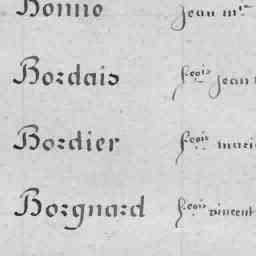 Bonno Jean m.
Bordais f.cois Jean
Bordier f.cois marie
Borgnard f.cois vincent